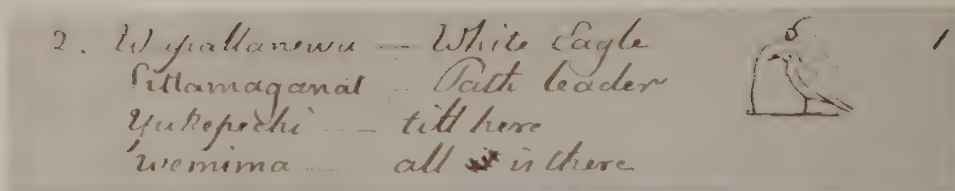 2. Wapallanewa — White Eagle 1
Sittamaganat - Path leader
Yukepechi — till here
Wemima — all is there